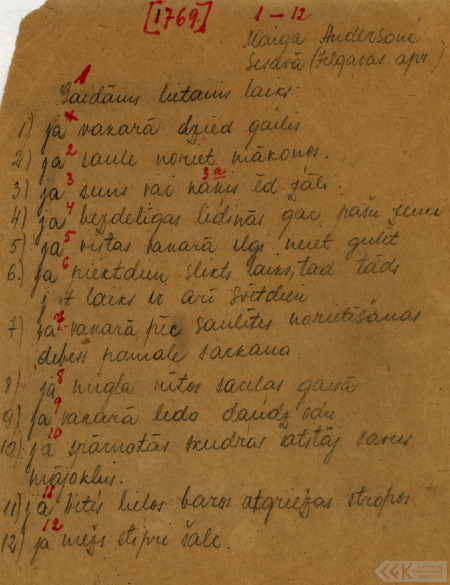 [1769] 1-12
Maiga Andersone
(Jelgavas apr.)
1
Gaidāms lietains laiks:
1) ja vakarā dzied gailis
2) ja 2 saule noriet mākoņos.
3a
3) ja 3 suns vai kaķis ēd zāli.
4) ja 4 bezdelīgas lidinās gar pašu zemi
5) ja 5 vistas vakarā ilgi neiet gulēt
6) ja 6 piektdien slikts laiks, tad tāds
pat laiks ir arī svētdien
7) ja 7 vakarā pēc saulītes norietēšanas
debess pamale sarkana.
8) ja 8 migla rītos saceļas gaisā
9) ja 9 vakarā lido daudz odu
10) ja 10 spārnotās skudras atstāj savus
mājokļus.
11) ja 11 bites lielos baros atgriežas stropos
12) ja 12 mežs stipri šalc.